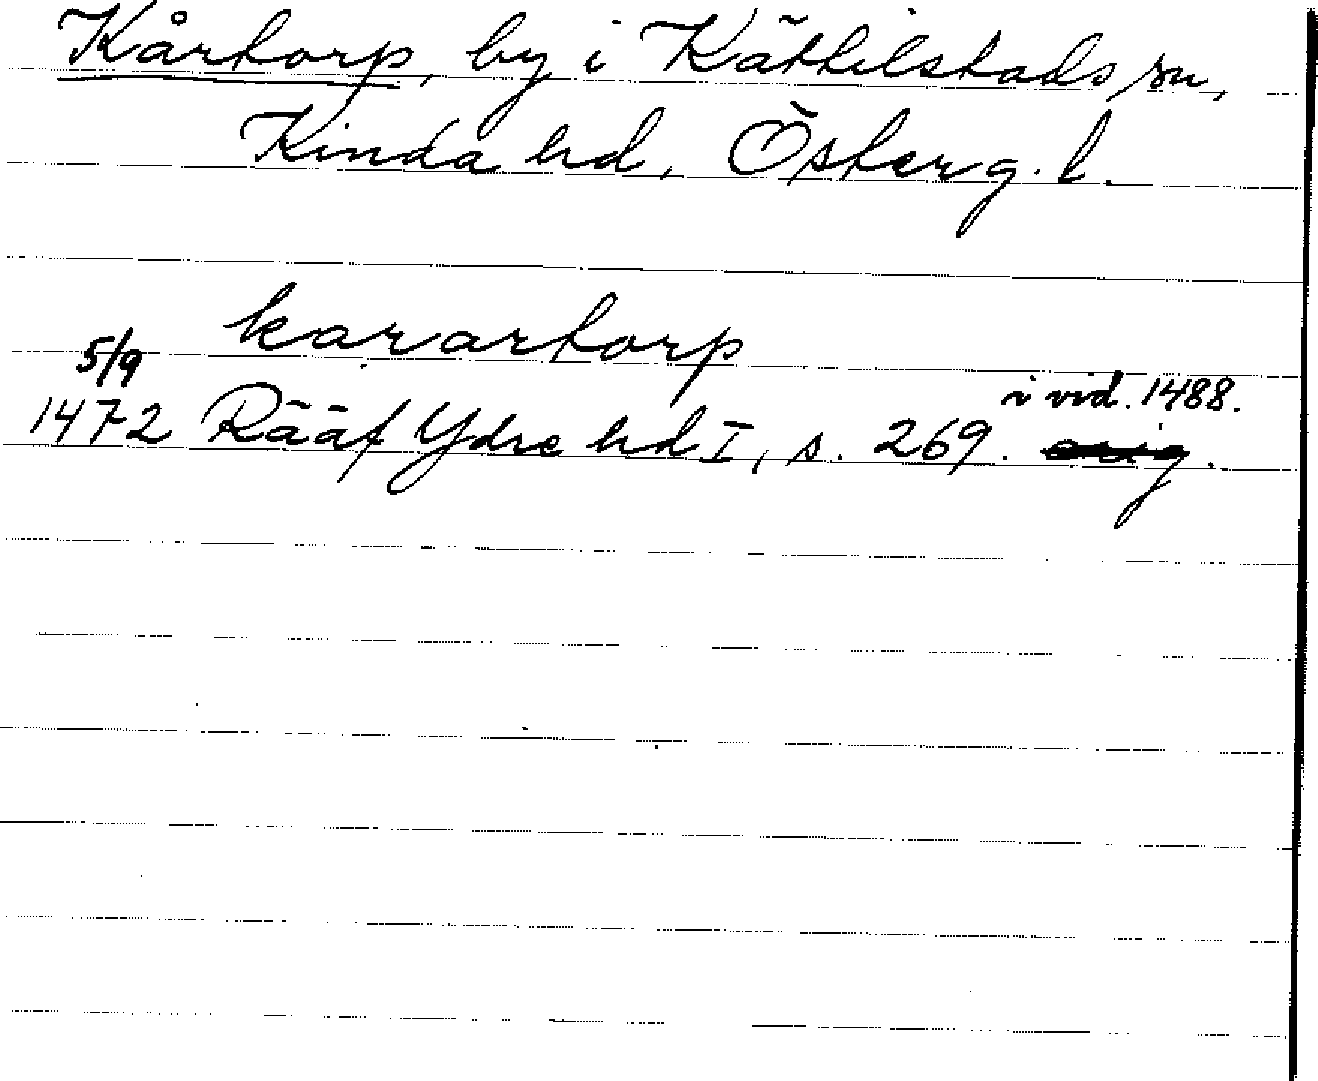 Kårtorp, by i Kättilstads sn,
Kinda hd, Österg. l.
karartorp
5/9
i vid. 1488.
1472 Rääf Ydre hd I, s. 269. orig.